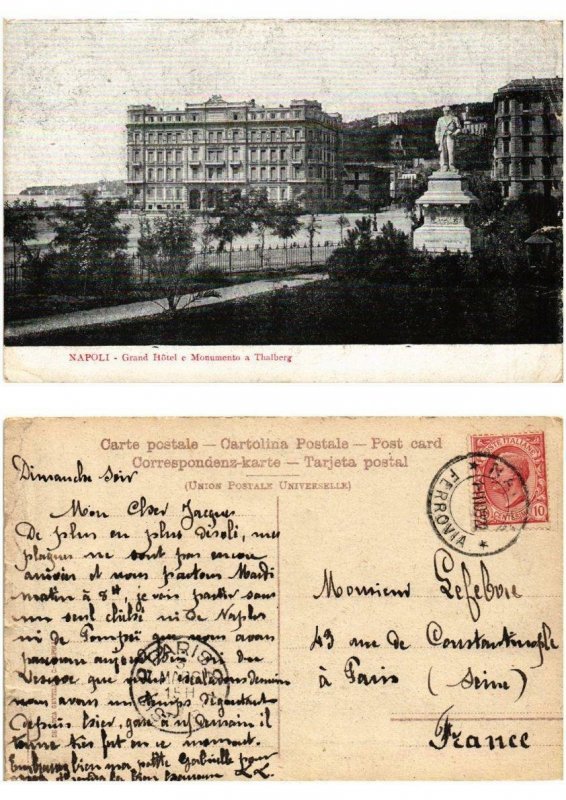 NAPOLI - Grand Hôtel e Monumento a Thalberg
Carte postale — Cartolina Postale — Post card
Correspondenz-karte — Tarjeta postal
(UNION POSTALE UNIVERSELLE)
POSTE ITALIANE
CENTESIMI 10
FERROVIA
Dimanche soir
Mon Cher Jacques
De plus en plus désolé, mes
plaques ne sont pas encore
arrivées et nous partons Mardi
matin à 8h, je vais partir sans
un seul cliché ni de Naples
ni de Pompéi que nous avons
parcouru aujourd'hui ni du
Vésuve que nous escaladons demain
nous avons un temps dégoutant
depuis hier, gare à demain il
tonne très fort en ce moment.
Embrasse bien ma petite Gabrielle pour
PARIS
15H
Monsieur Lefebvre
43 rue de Constantinople
à Paris (Seine)
France